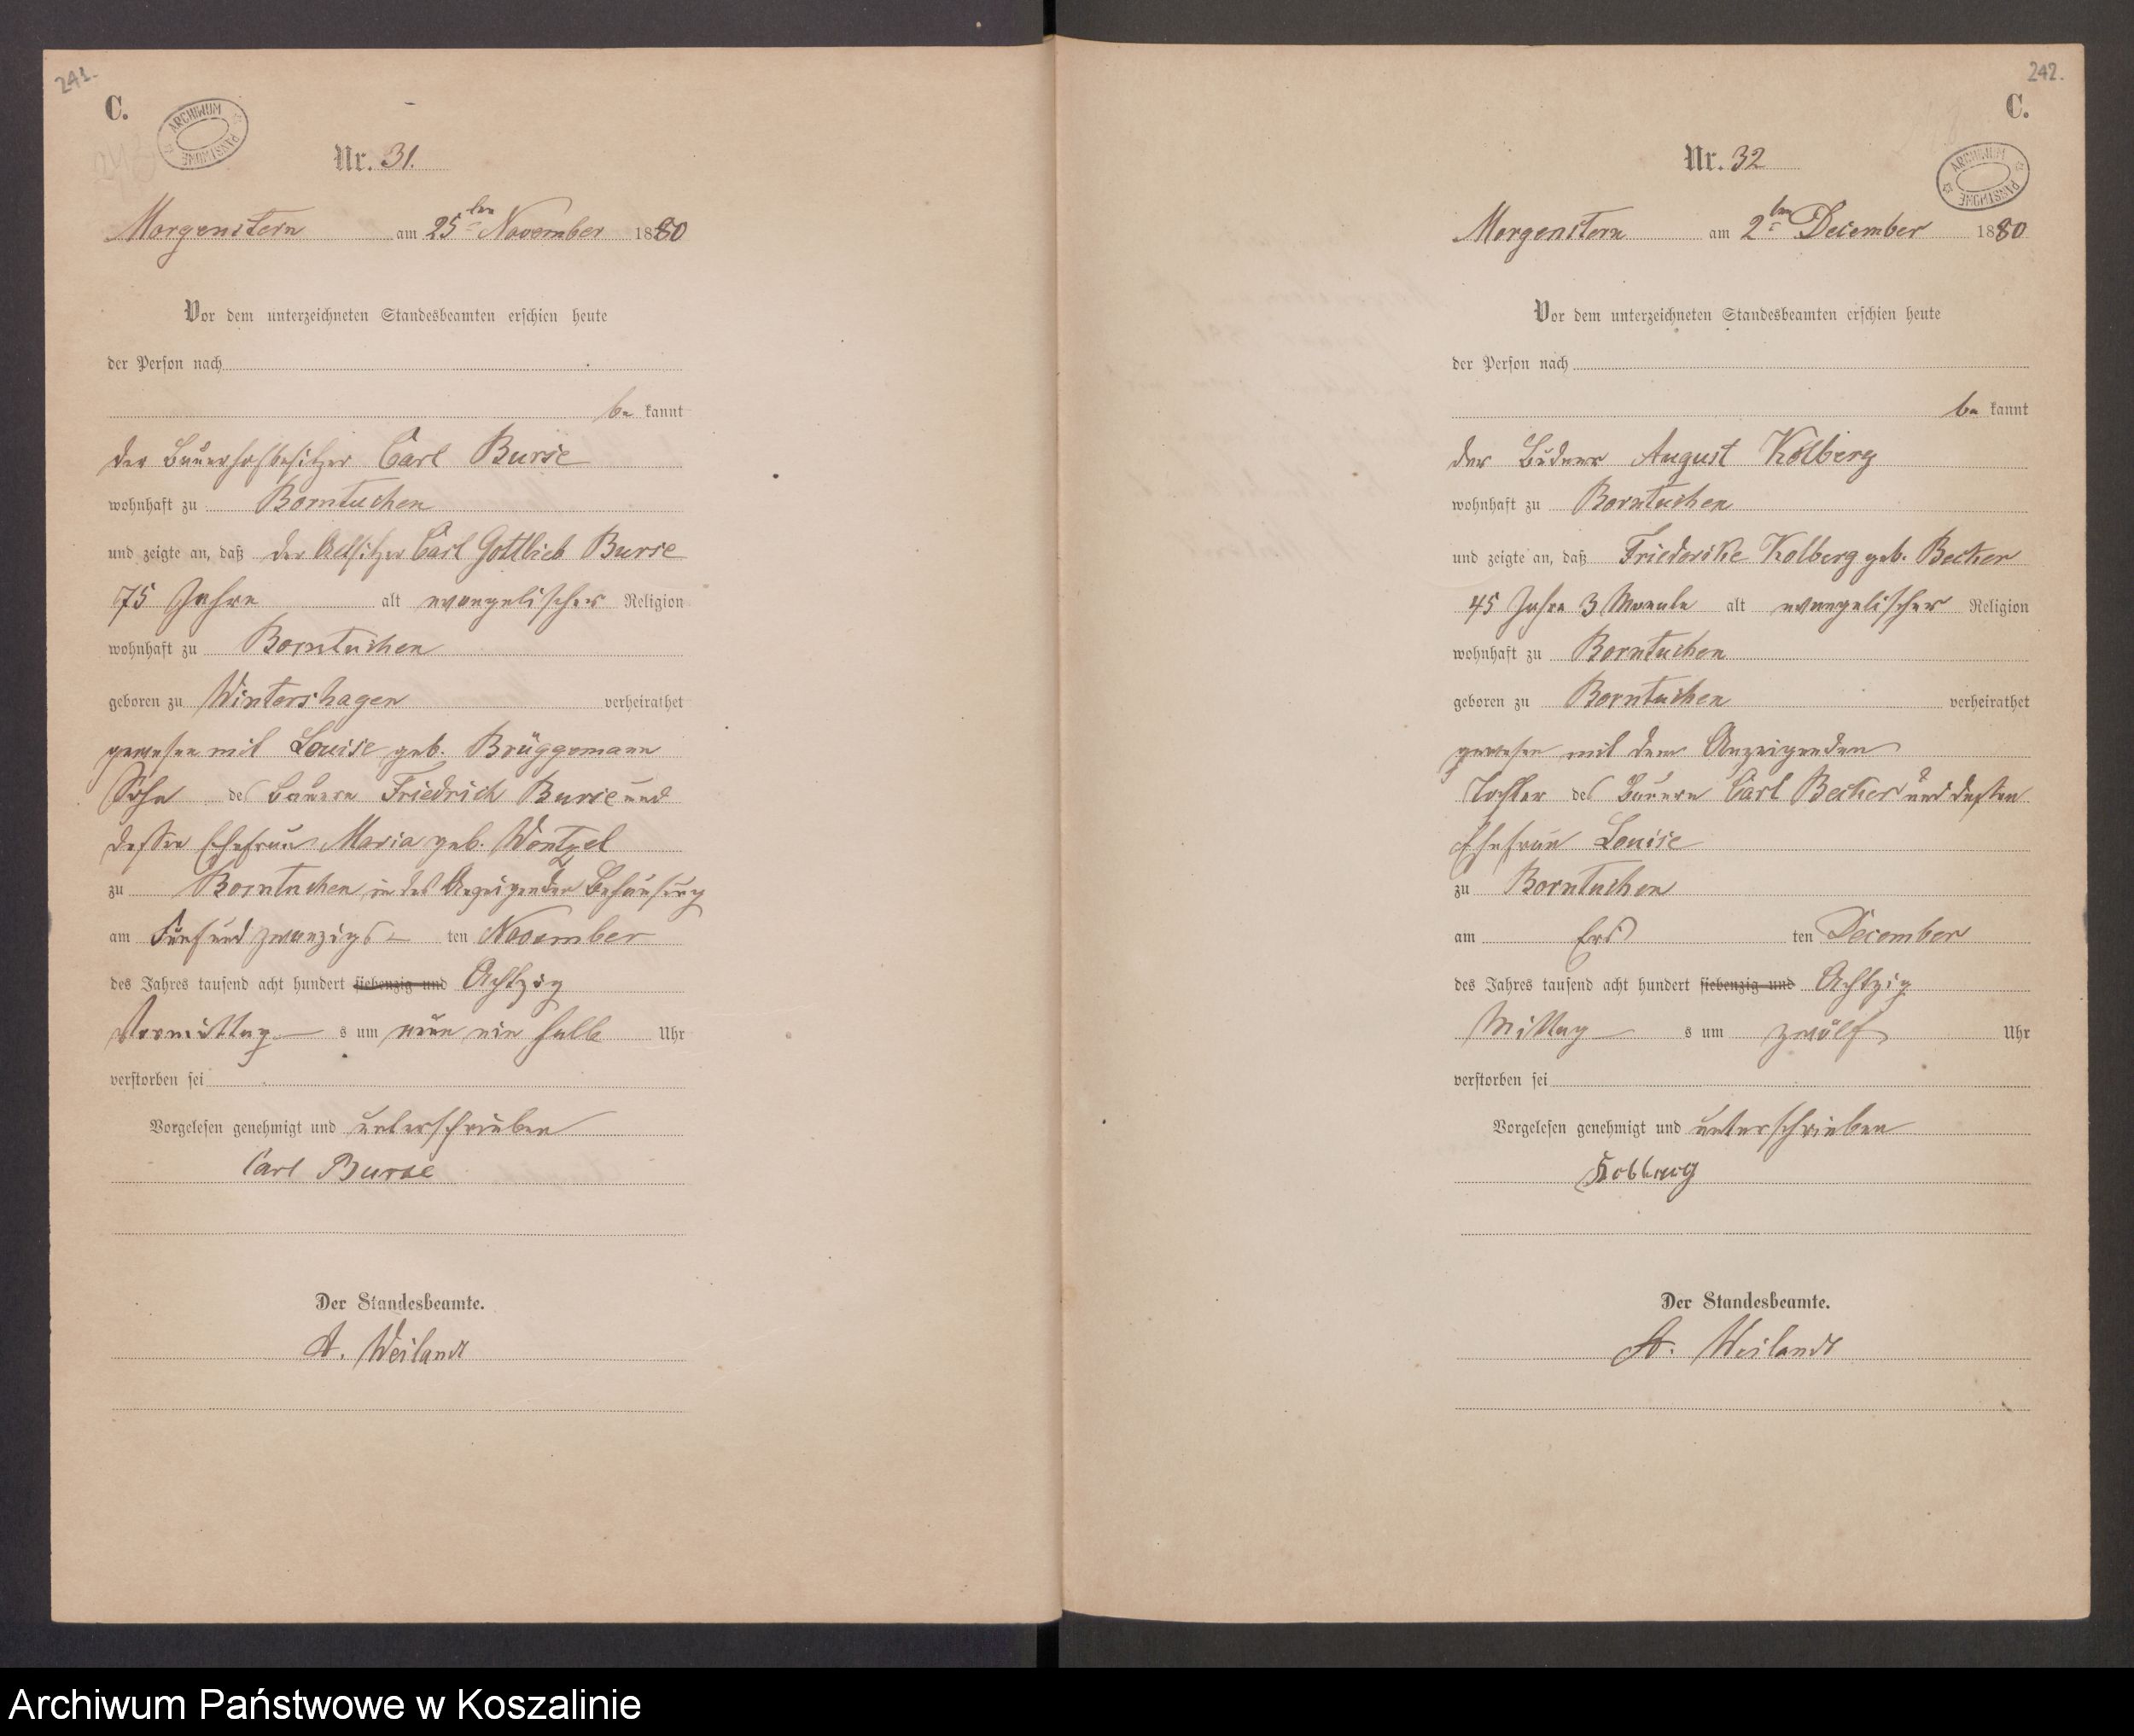 241.
C.
ARCHIWUM PAŃSTWOWE
Nr. 31.
Morgenstern am 25ten November 1880
Vor dem unterzeichneten Standesbeamten erschien heute
der Person nach
be kannt
der Bauerhofbesitzer Carl Burse
wohnhaft zu Borntuchen
und zeigte an, daß der Altsitzer Carl Gottlieb Burse
75 Jahre alt evangelischer Religion
wohnhaft zu Borntuchen
geboren zu Wintershagen verheirathet
gewesen mit Louise geb. Brüggemann
Sohn des Bauern Friedrich Burse und
dessen Ehefrau Maria geb. Wentzel
zu Borntuchen in des Anzeigenden Behausung
am Fünf und zwanzigs ten November
des Jahres tausend acht hundert siebenzig und Achtzig
Vormittag s um neun ein halb Uhr
verstorben sei
Vorgelesen genehmigt und unterschrieben
Carl Burse
Der Standesbeamte.
A. Weilandt
242.
C.
ARCHIWUM PAŃSTWOWE
Nr. 32
Morgenstern am 2ten December 1880
Vor dem unterzeichneten Standesbeamten erschien heute
der Person nach
be kannt
der Büdner August Kolberg
wohnhaft zu Borntuchen
und zeigte an, daß Friederike Kolberg geb. Becker
45 Jahre 3 Monate alt evangelischer Religion
wohnhaft zu Borntuchen
geboren zu Borntuchen verheirathet
gewesen mit dem Anzeigenden
Tochter des Bauern Carl Becker und dessen
Ehefrau Louise
zu Borntuchen
am Ers ten December
des Jahres tausend acht hundert siebenzig und Achtzig
Mittag s um zwölf Uhr
verstorben sei
Vorgelesen genehmigt und unterschrieben
Kolberg
Der Standesbeamte.
A. Weilandt
Archiwum Państwowe w Koszalinie